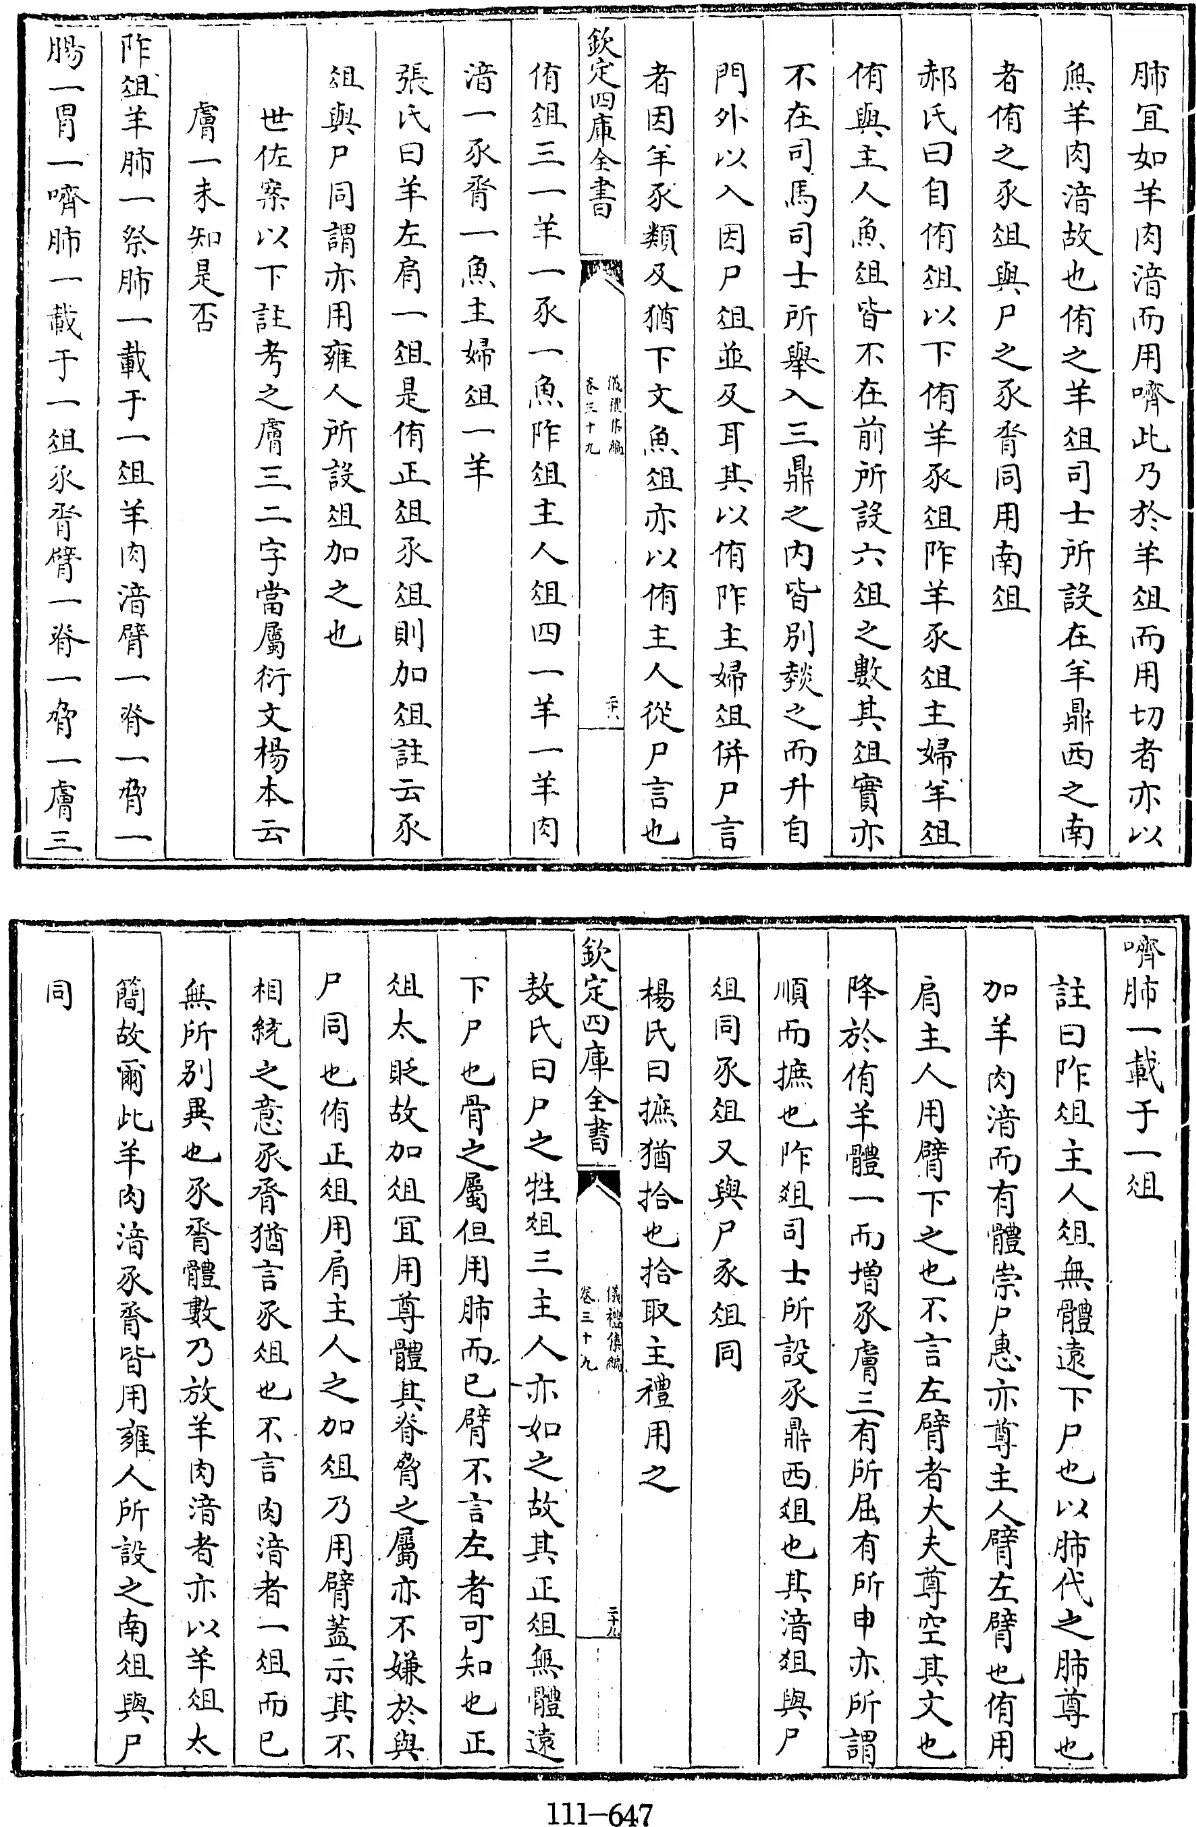 肺宜如羊肉湆而用嚌此乃於羊俎而用切者亦以
無羊肉湆故也侑之羊俎司士所設在羊鼎西之南
者侑之豕俎與尸之豕脀同用南俎
郝氏曰自侑俎以下侑羊豕俎阼羊豕俎主婦羊俎
侑與主人魚俎皆不在前所設六俎之數其俎實亦
不在司馬司士所舉入三鼎之內皆別燅之而升自
門外以入因尸俎並及耳其以侑阼主婦俎併尸言
者因羊豕類及猶下文魚俎亦以侑主人從尸言也
欽定四庫全書
儀禮集編
卷三十九
二十八
侑俎三一羊一豕一魚阼俎主人俎四一羊一羊肉
湆一豕脀一魚主婦俎一羊
張氏曰羊左肩一俎是侑正俎豕俎則加俎註云豕
俎與尸同謂亦用雍人所設俎加之也
世佐案以下註考之膚三二字當屬衍文楊本云
膚一未知是否
阼俎羊肺一祭肺一載于一俎羊肉湆臂一脊一脅一
腸一胃一嚌肺一載于一俎豕脀臂一脊一脅一膚三
嚌肺一載于一俎
註曰阼俎主人俎無體遠下尸也以肺代之肺尊也
加羊肉湆而有體崇尸惠亦尊主人臂左臂也侑用
肩主人用臂下之也不言左臂者大夫尊空其文也
降於侑羊體一而增豕膚三有所屈有所申亦所謂
順而摭也阼俎司士所設豕鼎西俎也其湆俎與尸
俎同豕俎又與尸豕俎同
楊氏曰摭猶拾也拾取主禮用之
欽定四庫全書
儀禮集編
卷三十九
二十九
敖氏曰尸之牲俎三主人亦如之故其正俎無體遠
下尸也骨之屬但用肺而已臂不言左者可知也正
俎太貶故加俎宜用尊體其脊脅之屬亦不嫌於與
尸同也侑正俎用肩主人之加俎乃用臂蓋示其不
相統之意豕脀猶言豕俎也不言肉湆者一俎而已
無所別異也豕脀體數乃放羊肉湆者亦以羊俎太
簡故爾此羊肉湆豕脀皆用雍人所設之南俎與尸
同
111-647